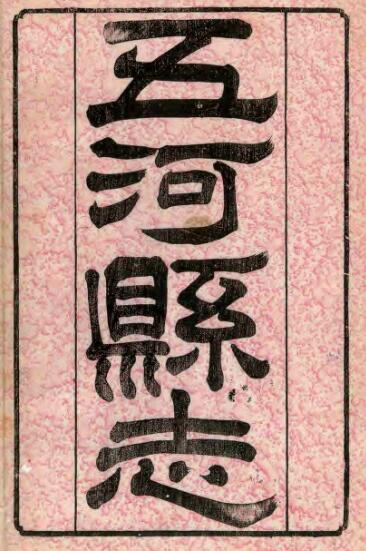 五河縣志